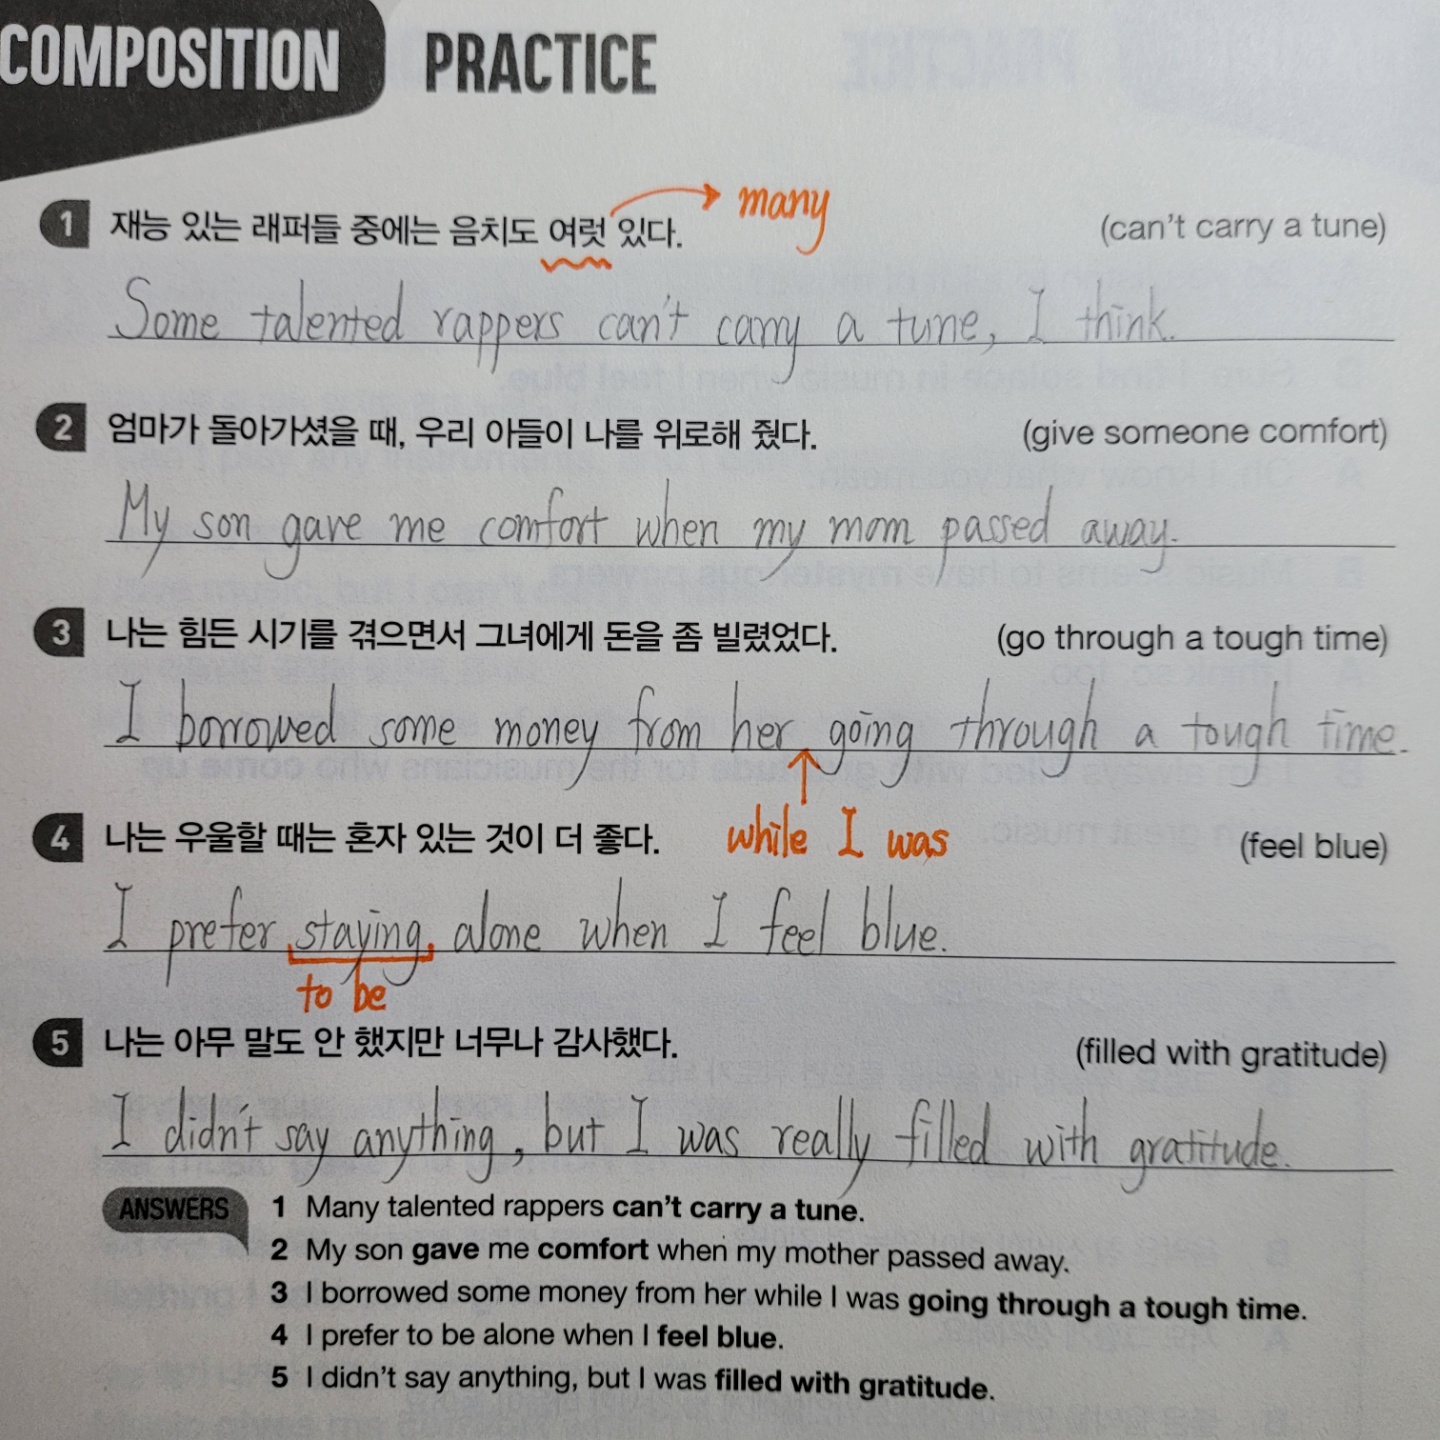 COMPOSITION PRACTICE
many
1 재능 있는 래퍼들 중에는 음치도 여럿 있다. (can't carry a tune)
Some talented rappers can't carry a tune, I think.
2 엄마가 돌아가셨을 때, 우리 아들이 나를 위로해 줬다. (give someone comfort)
My son gave me comfort when my mom passed away.
3 나는 힘든 시기를 겪으면서 그녀에게 돈을 좀 빌렸었다. (go through a tough time)
I borrowed some money from her going through a tough time.
while I was
4 나는 우울할 때는 혼자 있는 것이 더 좋다. (feel blue)
I prefer staying alone when I feel blue.
to be
5 나는 아무 말도 안 했지만 너무나 감사했다. (filled with gratitude)
I didn't say anything, but I was really filled with gratitude.
ANSWERS 1 Many talented rappers can't carry a tune.
2 My son gave me comfort when my mother passed away.
3 I borrowed some money from her while I was going through a tough time.
4 I prefer to be alone when I feel blue.
5 I didn't say anything, but I was filled with gratitude.